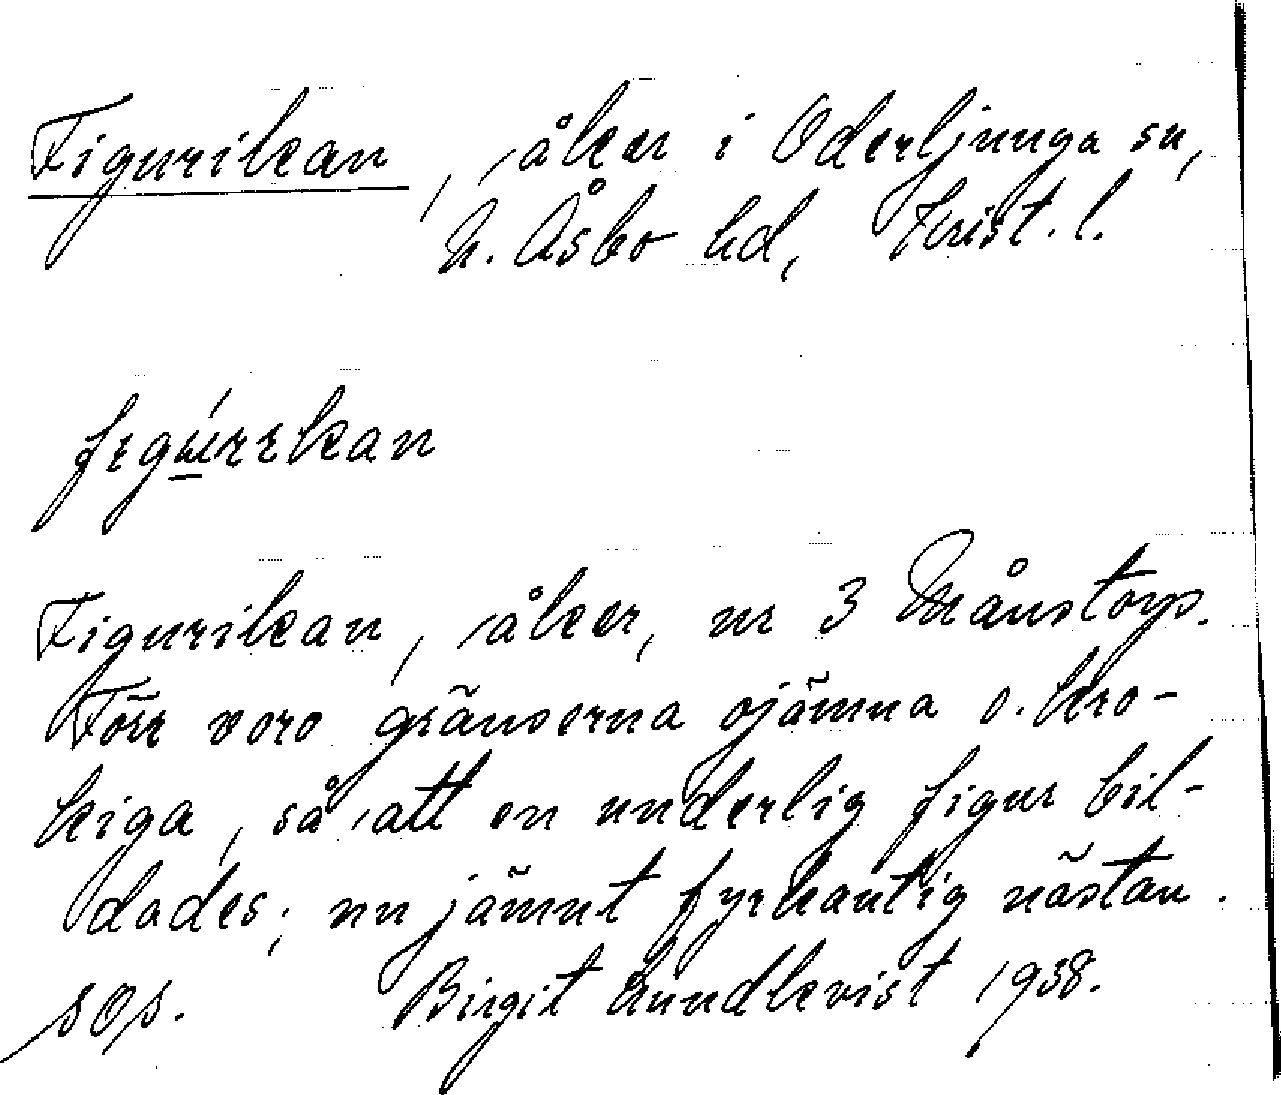 Figurikan, åker i Oderljunga sn,
N. Åsbo hd, Krist. l.
figúrikan
Figurikan, åker, nr 3 Månstorp.
Förr voro gränserna ojämna o. kro-
kiga, så att en underlig figur bil-
dades; nu jämnt fyrkantig nästan.
sOs. Birgit Lundkvist 1938.